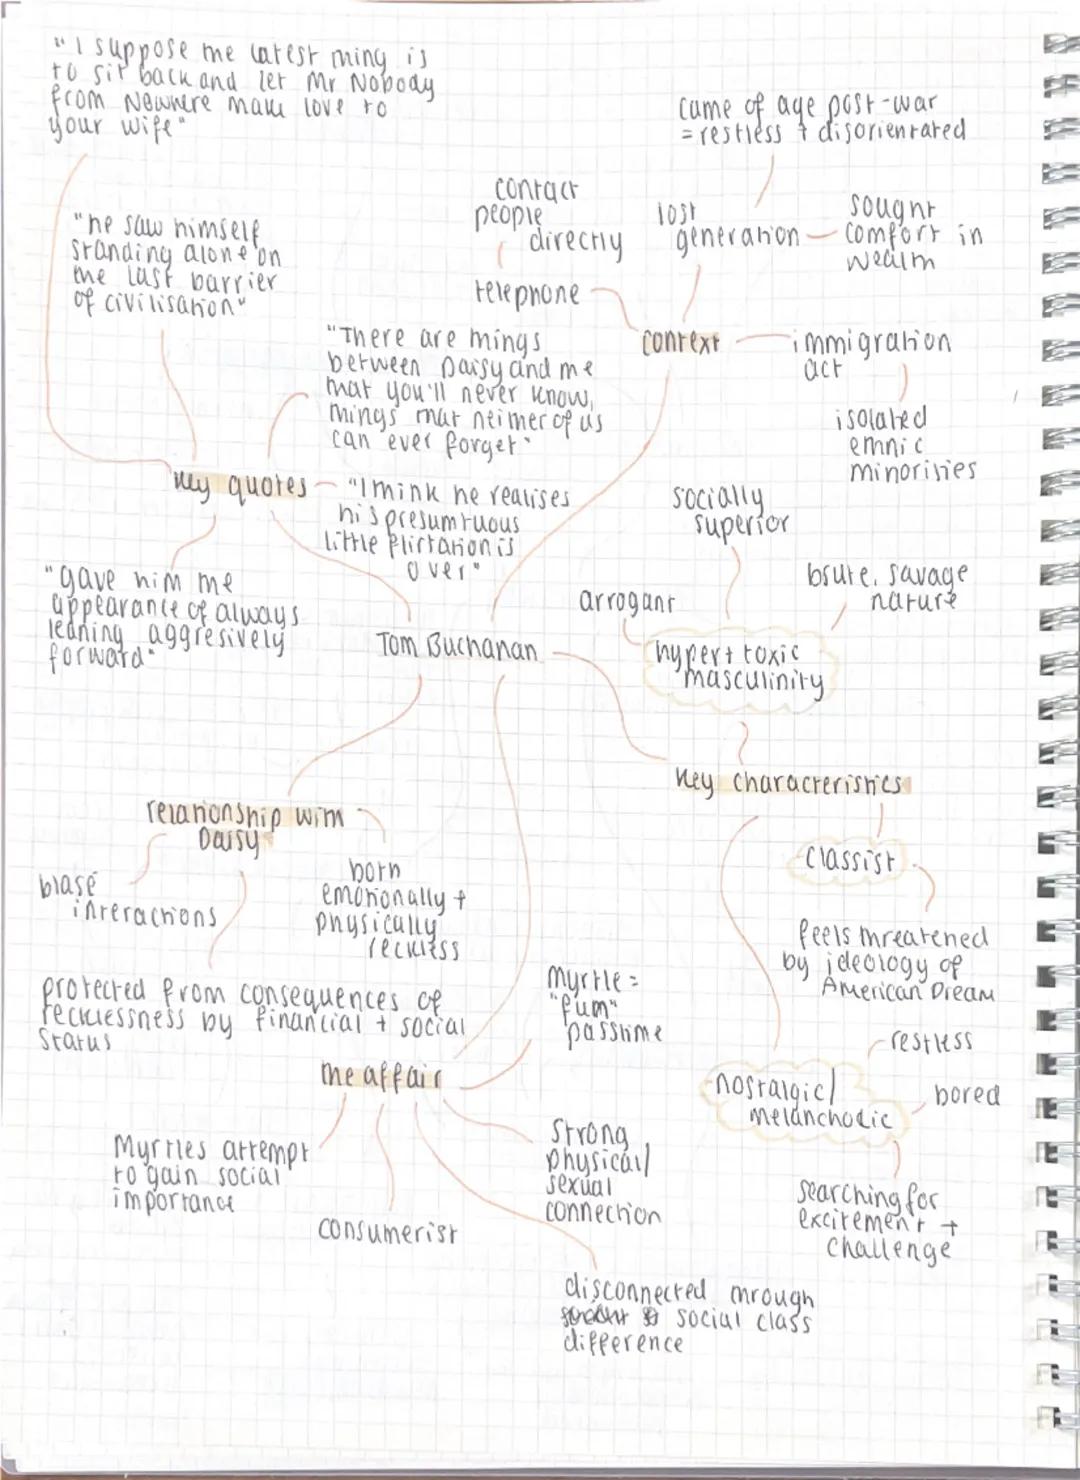 "I suppose the latest thing is
to sit back and let Mr Nobody
from Nowhere make love to
your wife"
came of age post-war
= restless + disorientated
contact
people
directly
lost
generation
sought
comfort in
wealth
"he saw himself
standing alone on
the last barrier
of civilisation"
telephone
context
immigration
act
"There are things
between Daisy and me
that you'll never know,
things that neither of us
can ever forget"
isolated
ethnic
minorities
key quotes
"I think he realises
his presumtuous
little flirtation is
over"
socially
superior
"gave him the
appearance of always
leaning aggresively
forward"
arrogant
brute, savage
nature
Tom Buchanan
hyper + toxic
masculinity
key characteristics
relationship with
Daisy
classist
blasé
interactions
both
emotionally +
physically
reckless
feels threatened
by ideology of
American Dream
protected from consequences of
recklessness by financial + social
status
Myrtle =
"fum"
passtime
restless
the affair
nostalgic/
melancholic
bored
Myrtles attempt
to gain social
importance
strong
physical/
sexual
connection
consumerist
searching for
excitement +
challenge
disconnected through
social class
difference